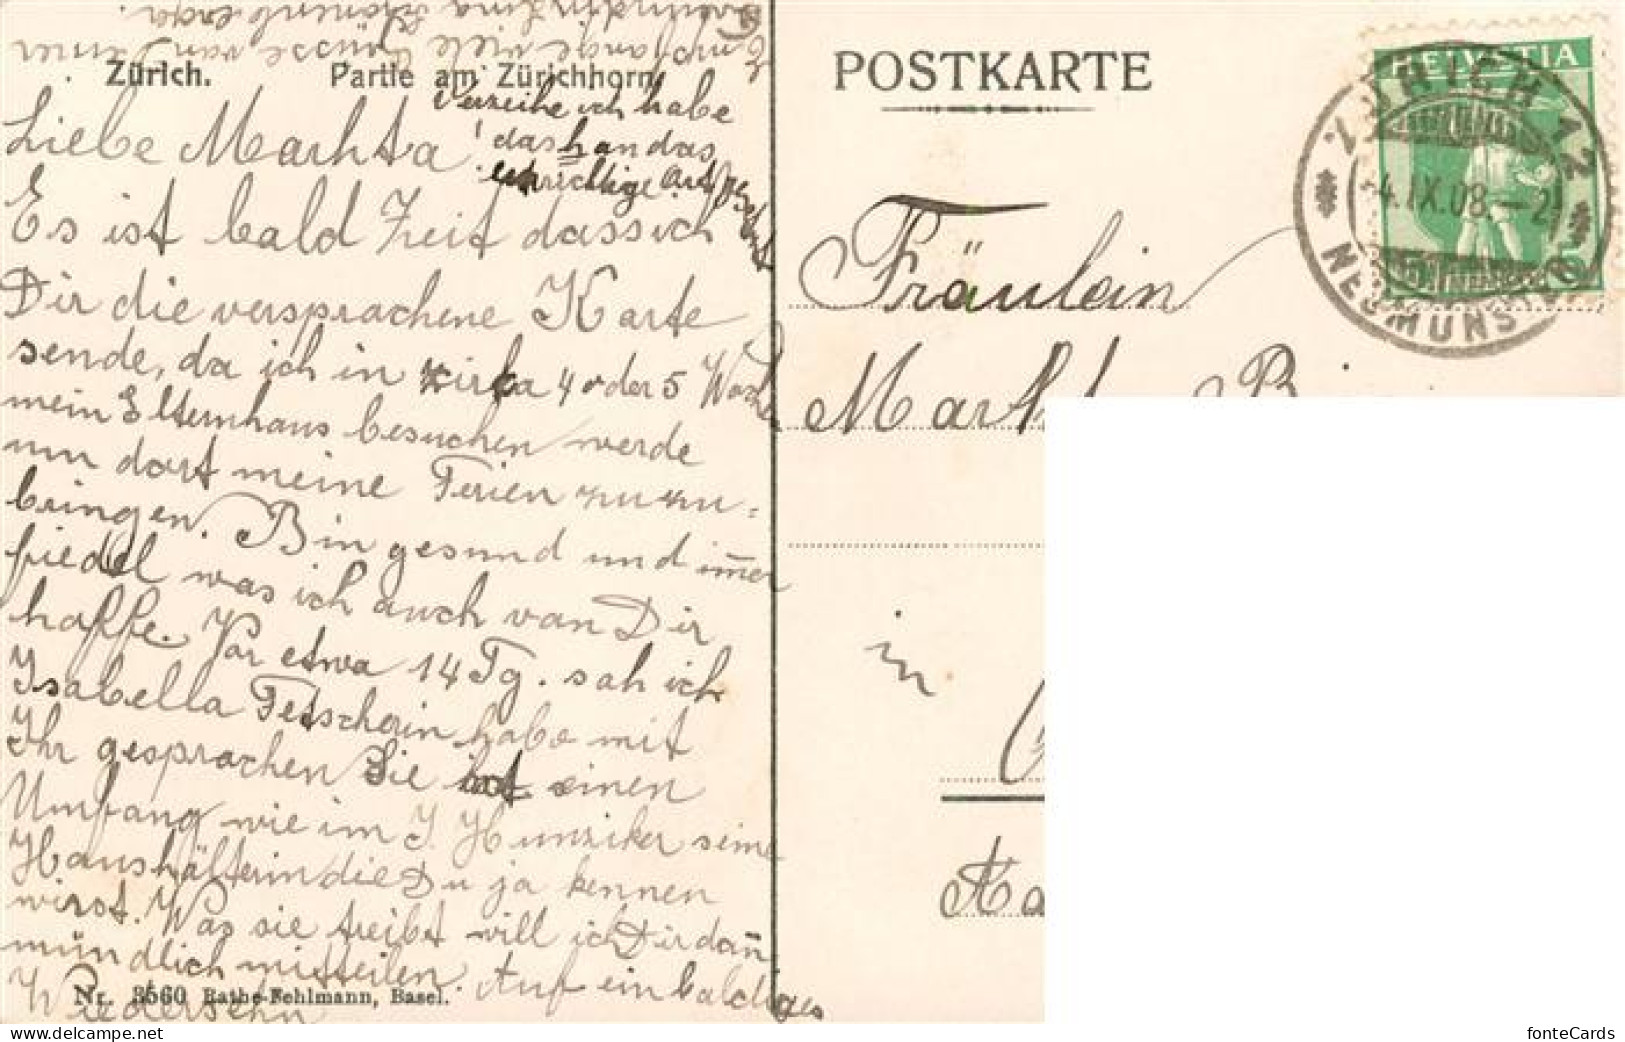 Zürich. Partie am Zürichhorn.
Empfange viele Grüsse von Deiner
Freundin Lina
Verzeihe ich habe
das h an das
unrichtige Ort gesetzt
Liebe Marhta!
Es ist bald Zeit dass ich
Dir die versprochene Karte
sende, da ich in zirka 4 oder 5 Wochen
mein Elternhaus besuchen werde
um dort meine Ferien zuzu=
bringen. Bin gesund und im̅er
fiedel was ich auch von Dir
hoffe. Vor etwa 14 Tg. sah ich
Isabella Fetscherin habe mit
Ihr gesprochen Sie hat einen
Umfang wie im J. Hunziker seine
Haushälterin die Du ja kennen
wirst. Was sie treibt will ich Dir dan̅
mündlich mitteilen. Auf ein baldiges
Wiedersehn
Nr. 3560 Rathe-Fehlmann, Basel.
POSTKARTE
HELVETIA
ZÜRICH 12
4.IX.08.–2
NEUMÜNSTER
Fräulein
in
fonteCards
www.delcampe.net